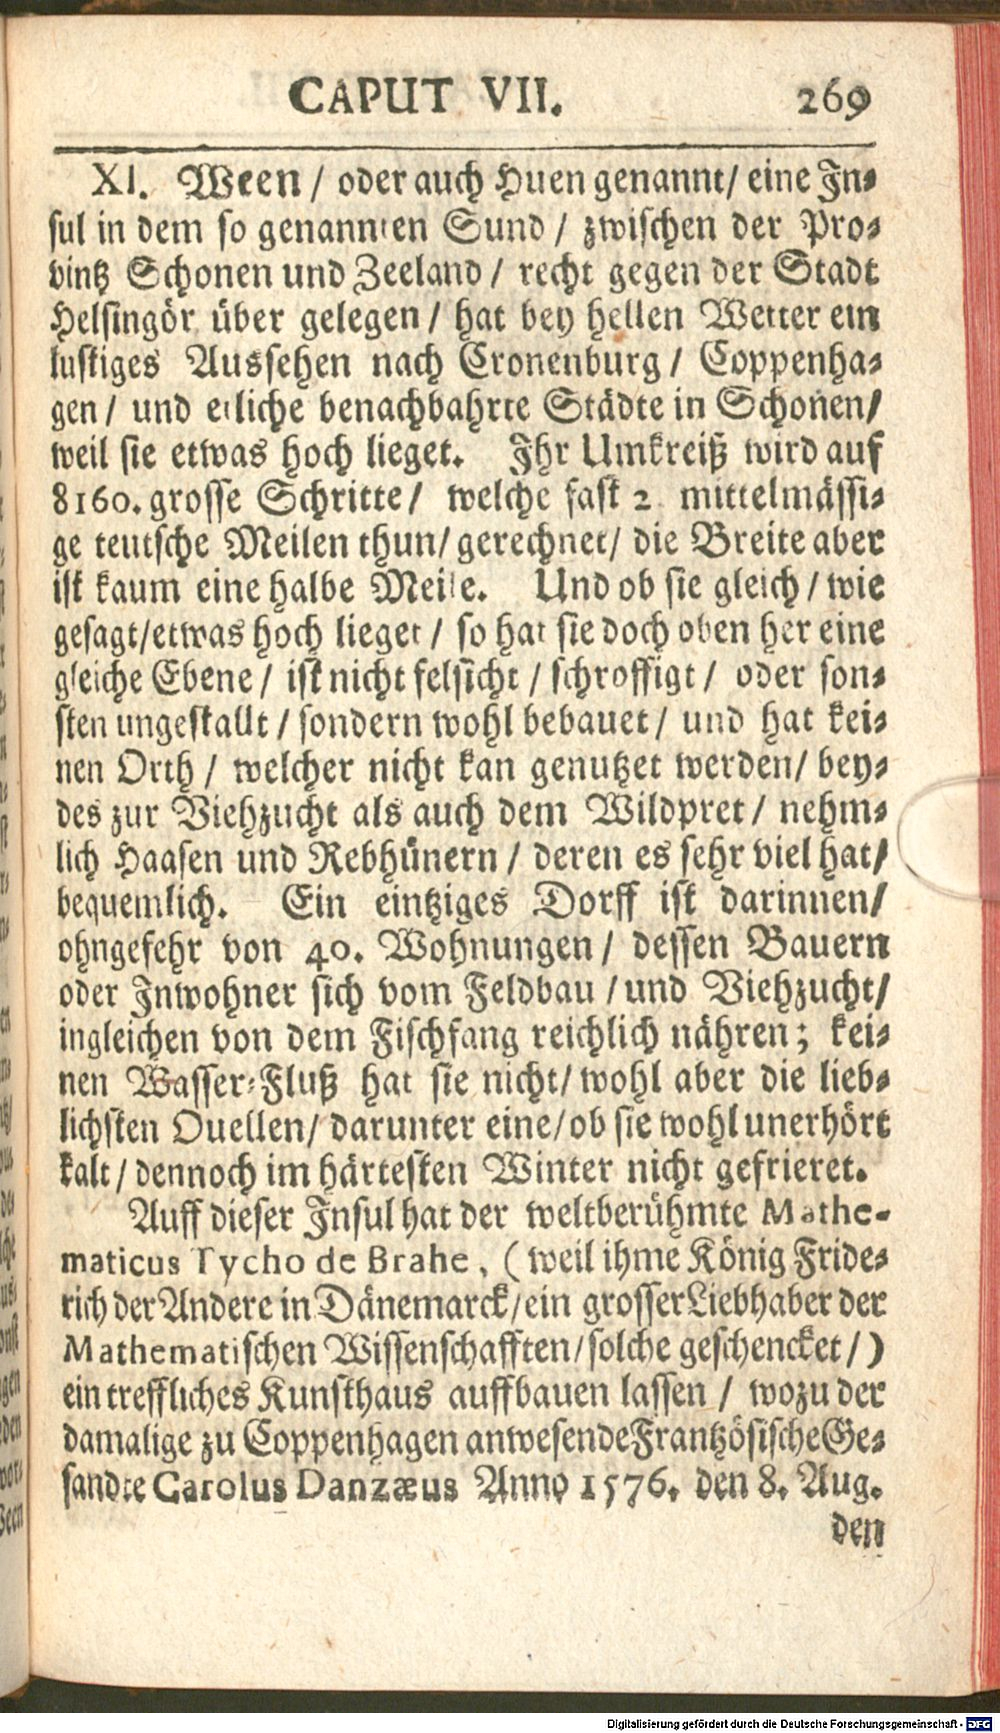 CAPUT VII. 269
XI. Ween / oder auch Huen genannt / eine In-
sul in dem so genannten Sund / zwischen der Pro-
vintz Schonen und Zeeland / recht gegen der Stadt
Helsingör über gelegen / hat bey hellen Wetter ein
lustiges Aussehen nach Cronenburg / Coppenha-
gen / und etliche benachbahrte Städte in Schonen /
weil sie etwas hoch lieget. Ihr Umkreiß wird auf
8160. grosse Schritte / welche fast 2 mittelmässi-
ge teutsche Meilen thun / gerechnet / die Breite aber
ist kaum eine halbe Meile. Und ob sie gleich / wie
gesagt / etwas hoch lieget / so hat sie doch oben her eine
gleiche Ebene / ist nicht felsicht / schroffigt / oder son-
sten ungestallt / sondern wohl bebauet / und hat kei-
nen Orth / welcher nicht kan genutzet werden / bey-
des zur Viehzucht als auch dem Wildpret / nehm-
lich Haasen und Rebhünern / deren es sehr viel hat /
bequemlich. Ein eintziges Dorff ist darinnen /
ohngefehr von 40. Wohnungen / dessen Bauern
oder Inwohner sich vom Feldbau / und Viehzucht /
ingleichen von dem Fischfang reichlich nähren ; kei-
nen Wasser-Fluß hat sie nicht / wohl aber die lieb-
lichsten Quellen / darunter eine / ob sie wohl unerhört
kalt / dennoch im härtesten Winter nicht gefrieret.
Auff dieser Insul hat der weltberühmte Mathe-
maticus Tycho de Brahe, ( weil ihme König Fride-
rich der Andere in Dänemarck / ein grosser Liebhaber der
Mathematischen Wissenschafften / solche geschencket / )
ein treffliches Kunsthaus auffbauen lassen / wozu der
damalige zu Coppenhagen anwesende Frantzösische Ge-
sandte Carolus Danzæus Anno 1576. den 8. Aug.
den
Digitalisierung gefördert durch die Deutsche Forschungsgemeinschaft - DFG